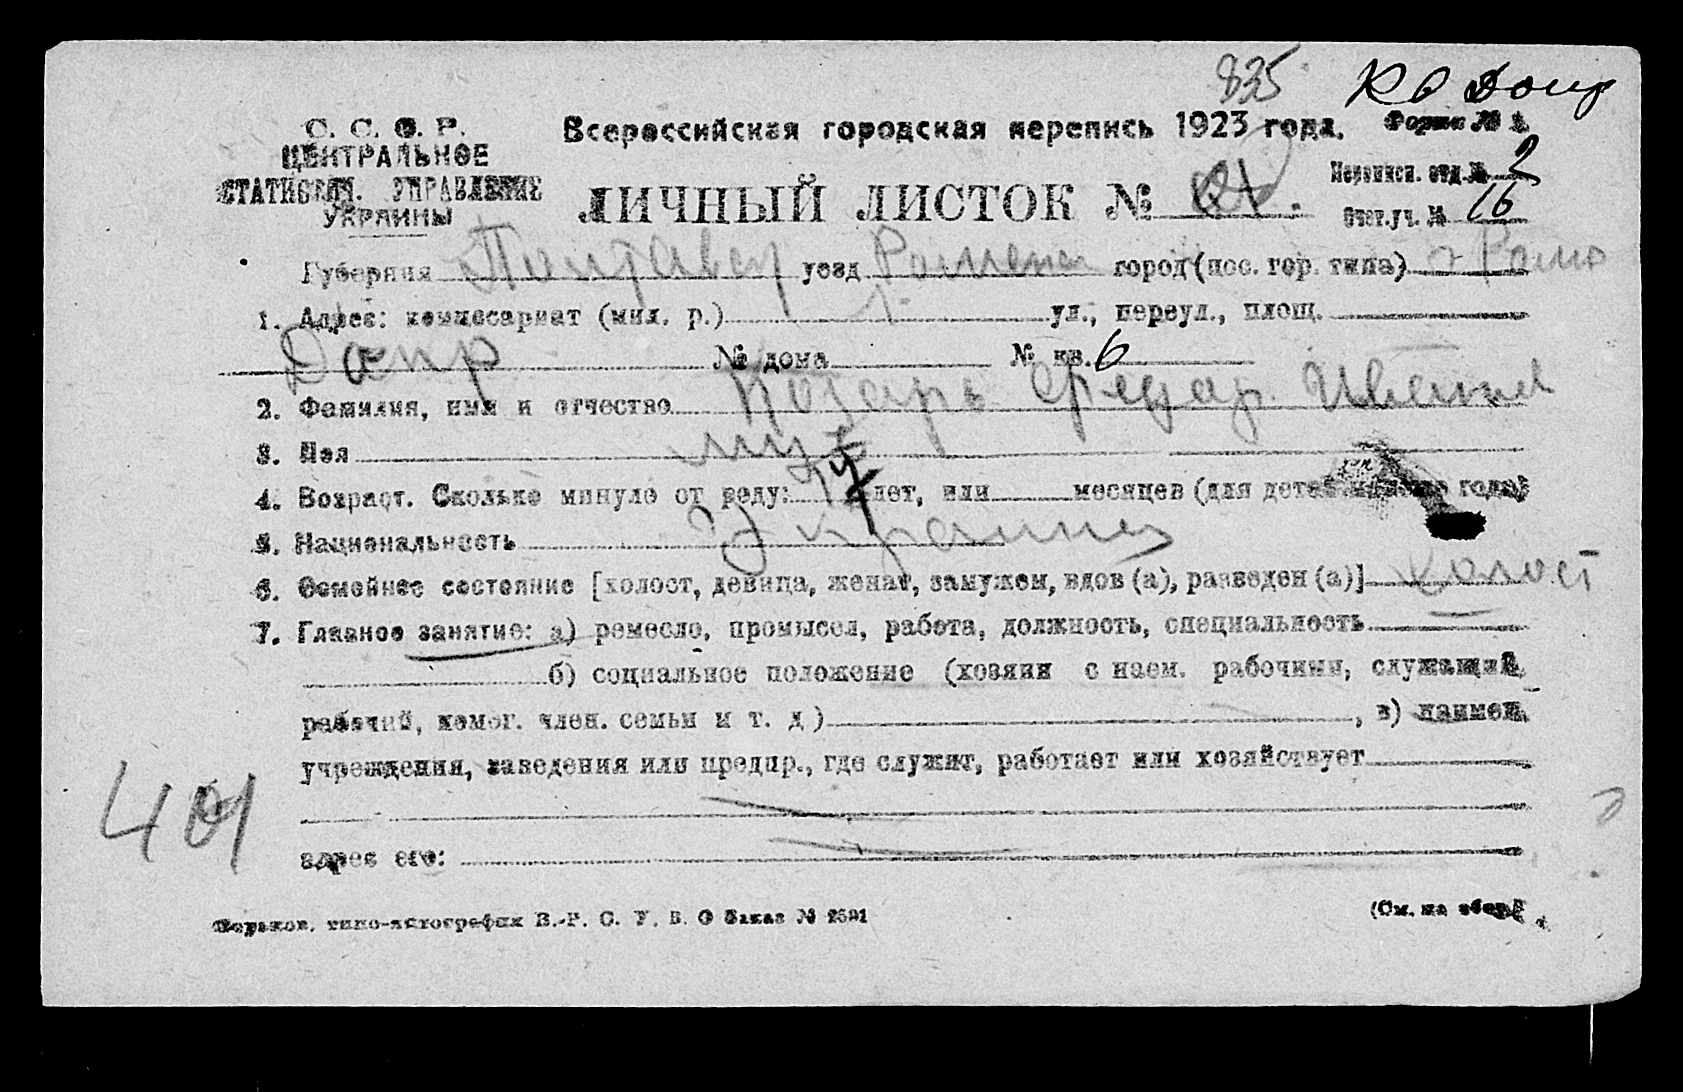 835
С. С. С. Р.
ЦЕНТРАЛЬНОЕ
СТАТИСТИЧ. УПРАВЛЕНИЕ
УКРАИНЫ
Всероссийская городская перепись 1923 года. Форма № 1.
ЛИЧНЫЙ ЛИСТОК №
Переписн. отд. № 2
Счет. уч. № 16
Губерния Полтавск уезд Роменск город (пос. гор. типа) г Ромн
1. Адрес: комиссариат (мил. р.) ул., переул., площ.
Допр № дома № кв. 6
2. Фамилия, имя и отчество Федор
3. Пол муж
4. Возраст. Сколько минуло от роду: лет, или месяцев (для детей года)
5. Национальность Украинец
6. Семейное состояние [холост, девица, женат, замужем, вдов (а), разведен (а)] холост
7. Главное занятие: а) ремесло, промысел, работа, должность, специальность
б) социальное положение (хозяин с наем. рабочими, служащий,
рабочий, помог. член. семьи и т. д) , в) наимен.
учреждения, заведения или предпр., где служит, работает или хозяйствует
401
адрес его:
Харьков. типо-литография В.-Р. С. У. В. О Заказ № 2591
(См. на обор.)